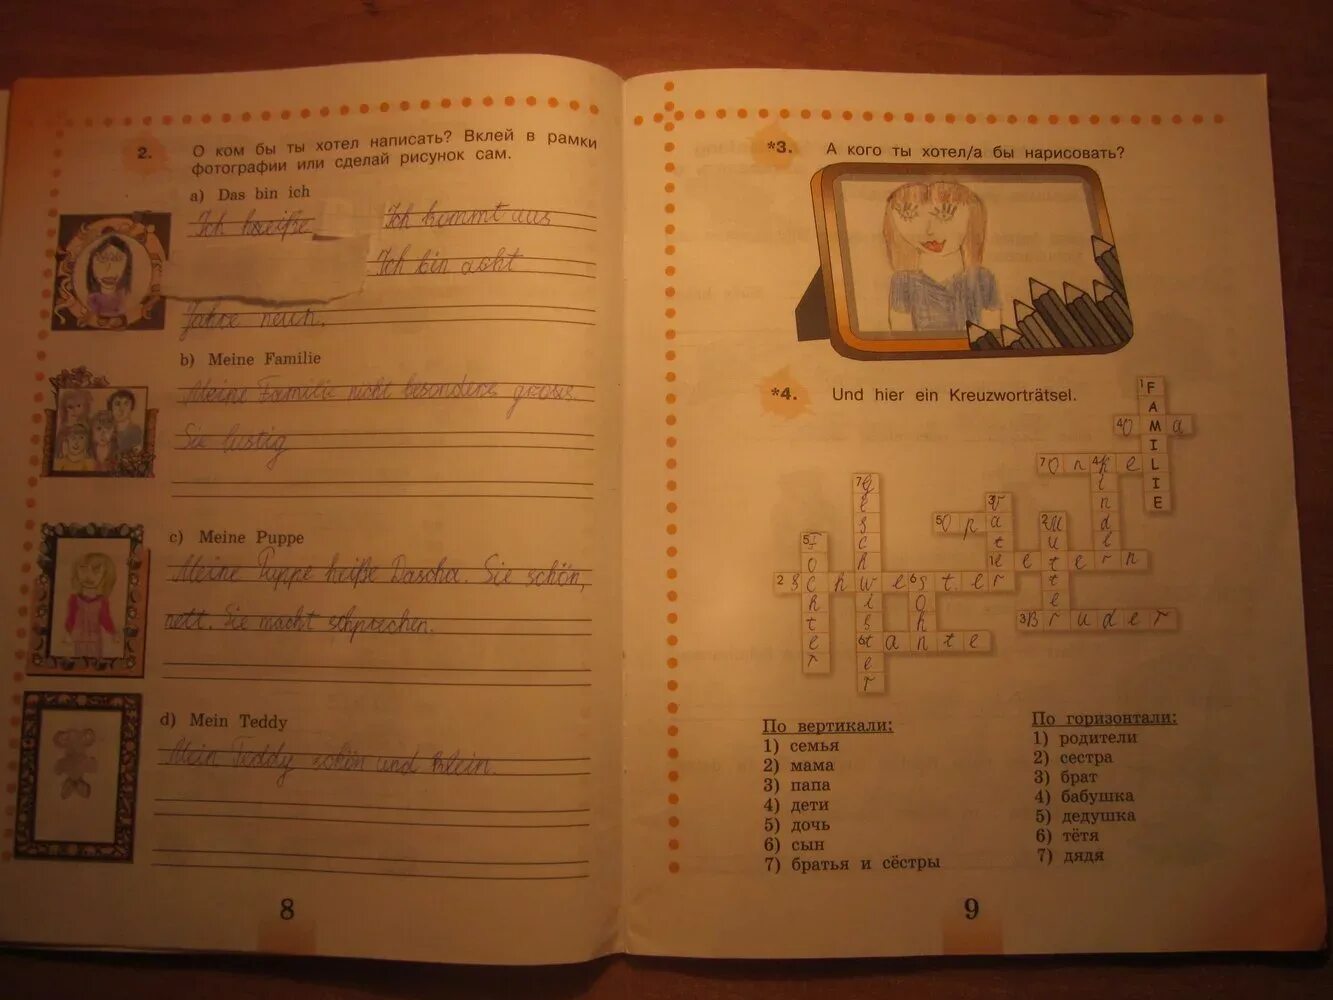 2. О ком бы ты хотел написать? Вклей в рамки
фотографии или сделай рисунок сам.
a) Das bin ich
Ich heiße Ich kommt aus
Ich bin acht
Jahre neun.
b) Meine Familie
Meine Familie nicht besonders gross.
Sie lustig
c) Meine Puppe
Meine Puppe heiße Dascha. Sie schön,
nett. Sie macht schprechen.
d) Mein Teddy
Mein Teddy schön und klein.
8
*3. А кого ты хотел/а бы нарисовать?
*4. Und hier ein Kreuzworträtsel.
1 FAMILIE
4 Oma
7 Onkel
4 Kinder
7 geschwister
3 Vater
5 Opa
2 Mutter
5 Tochter
1 eltern
2 Schwester
6 Sohn
3 Bruder
6 tante
По вертикали:
1) семья
2) мама
3) папа
4) дети
5) дочь
6) сын
7) братья и сёстры
По горизонтали:
1) родители
2) сестра
3) брат
4) бабушка
5) дедушка
6) тётя
7) дядя
9